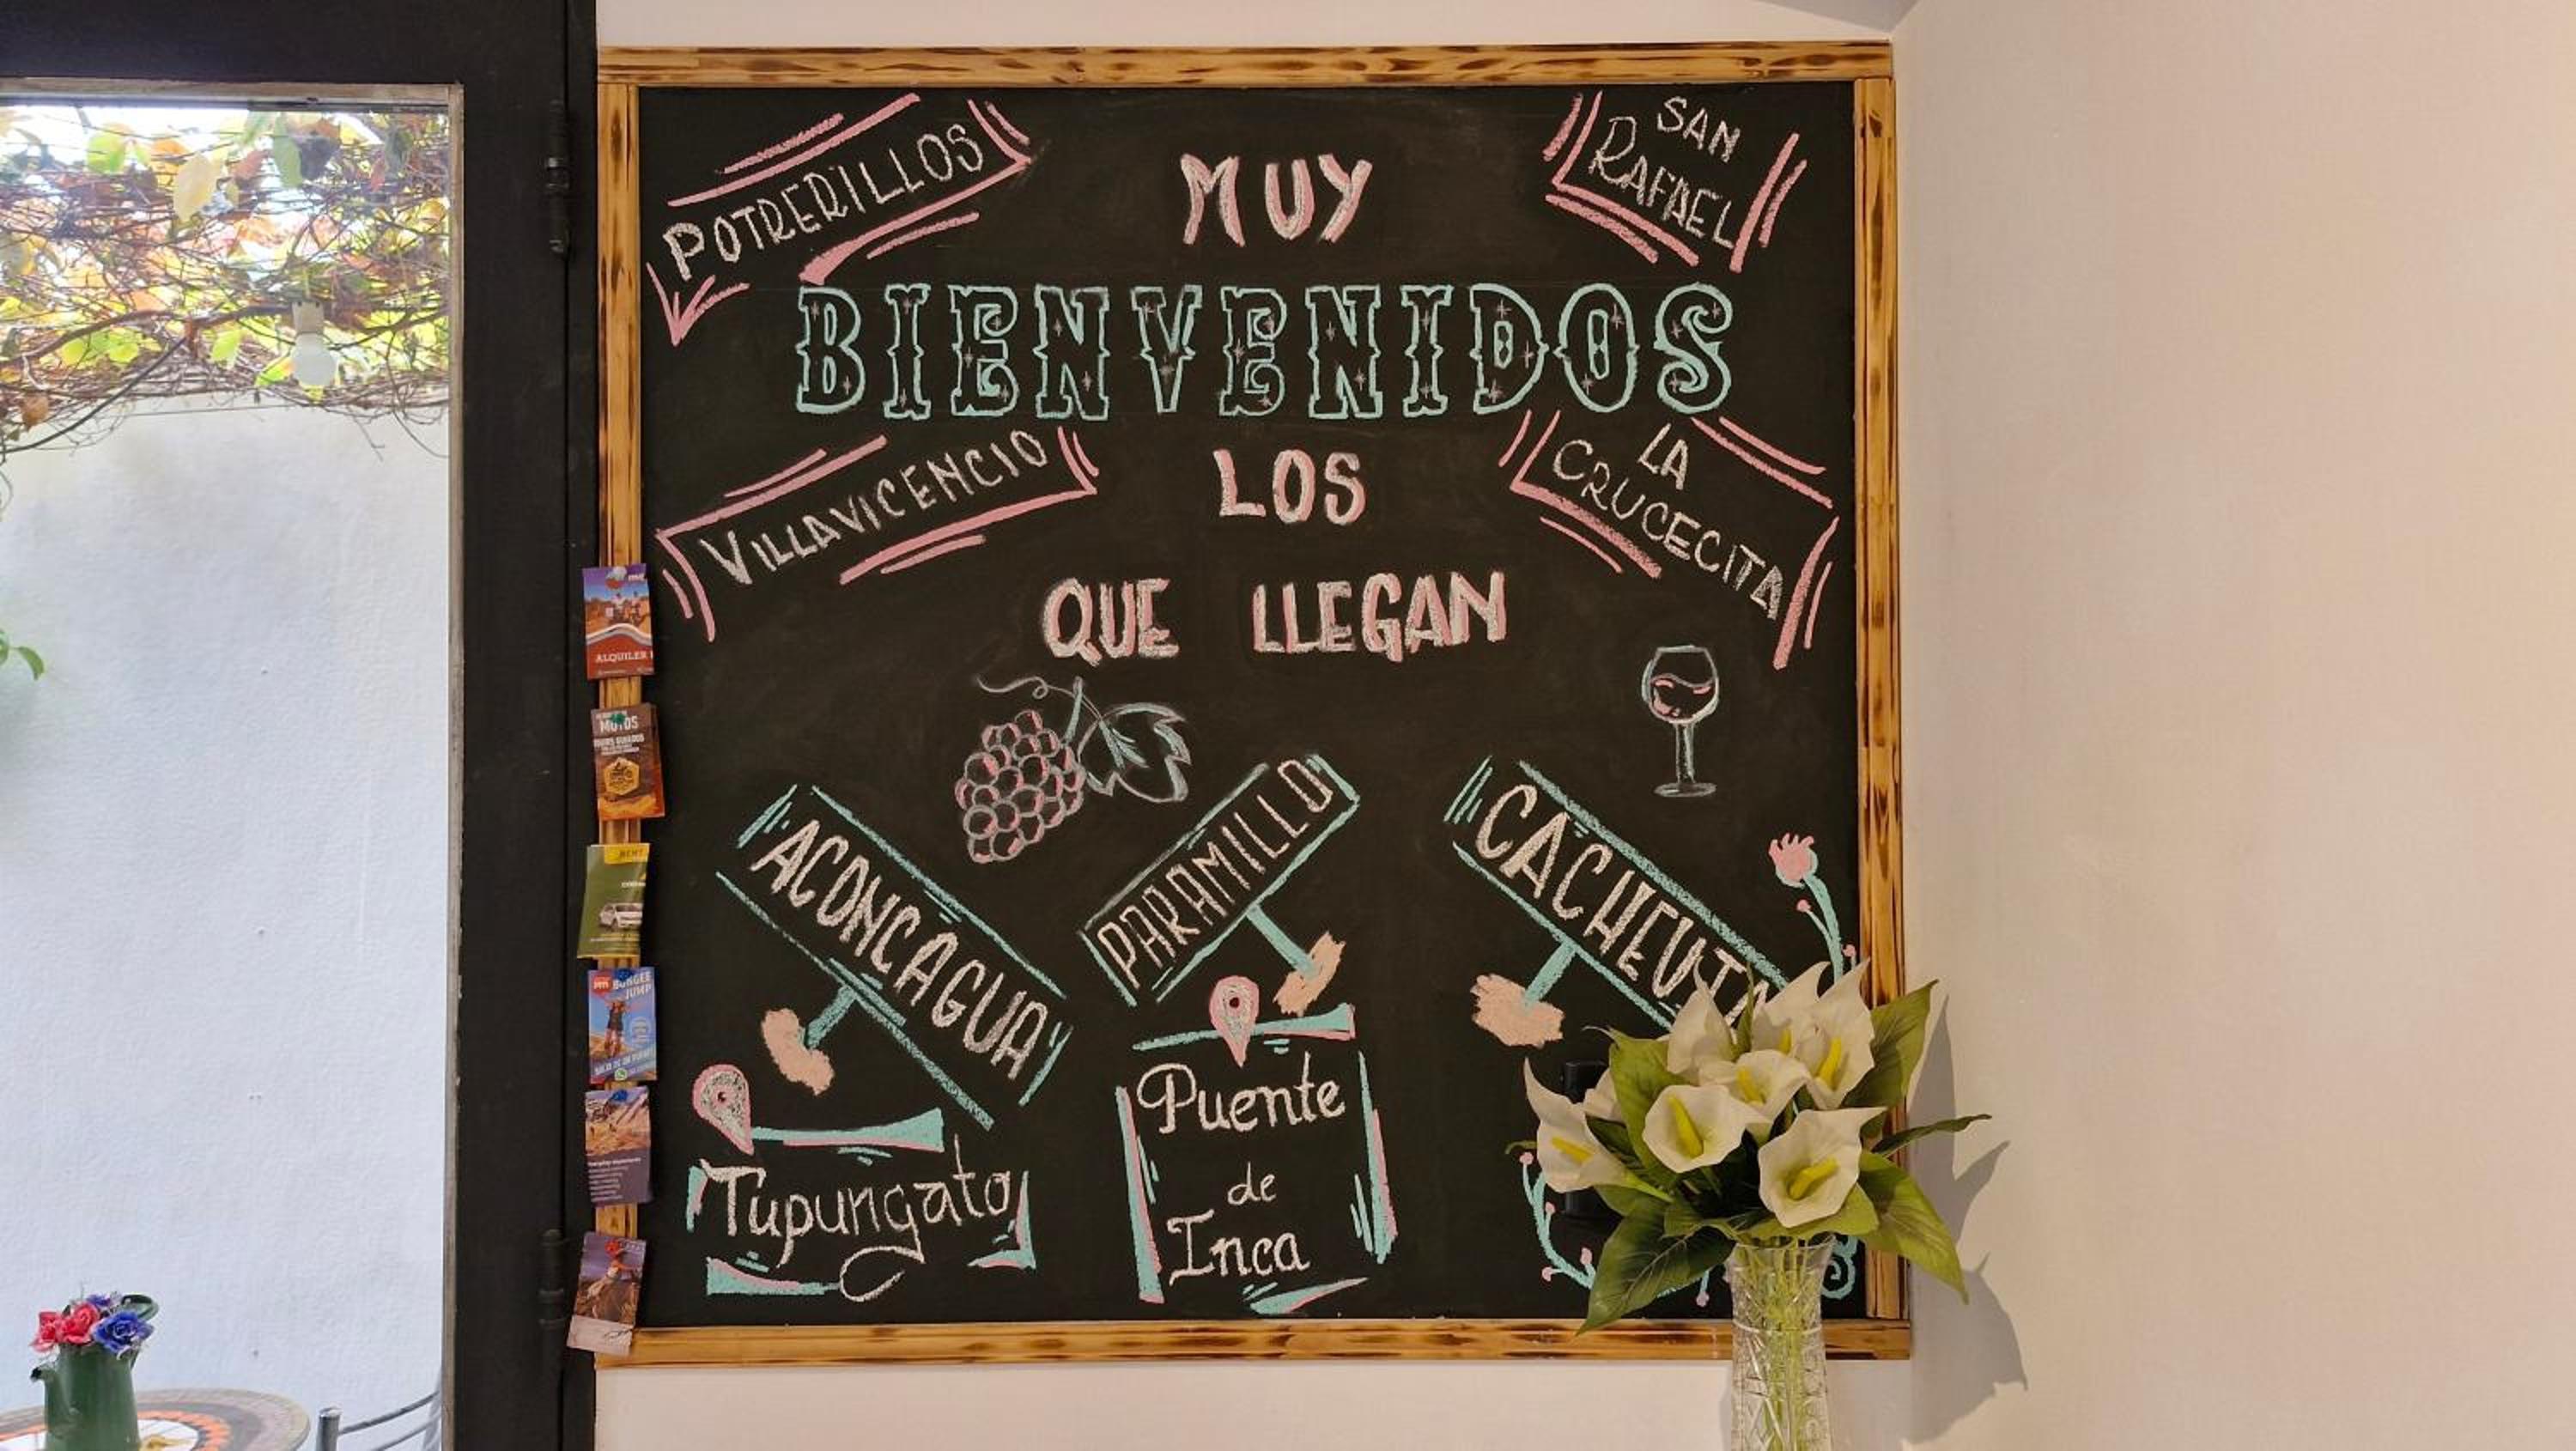 POTRERILLOS
SAN
RAFAEL
MUY
BIENVENIDOS
VILLAVICENCIO
LOS
LA
CRUCECITA
QUE LLEGAN
ACONCAGUA
PARAMILLO
CACHEUTA
Tupungato
Puente
de
Inca
ALQUILER
MOTOS
RENT
BUNGEE
JUMP